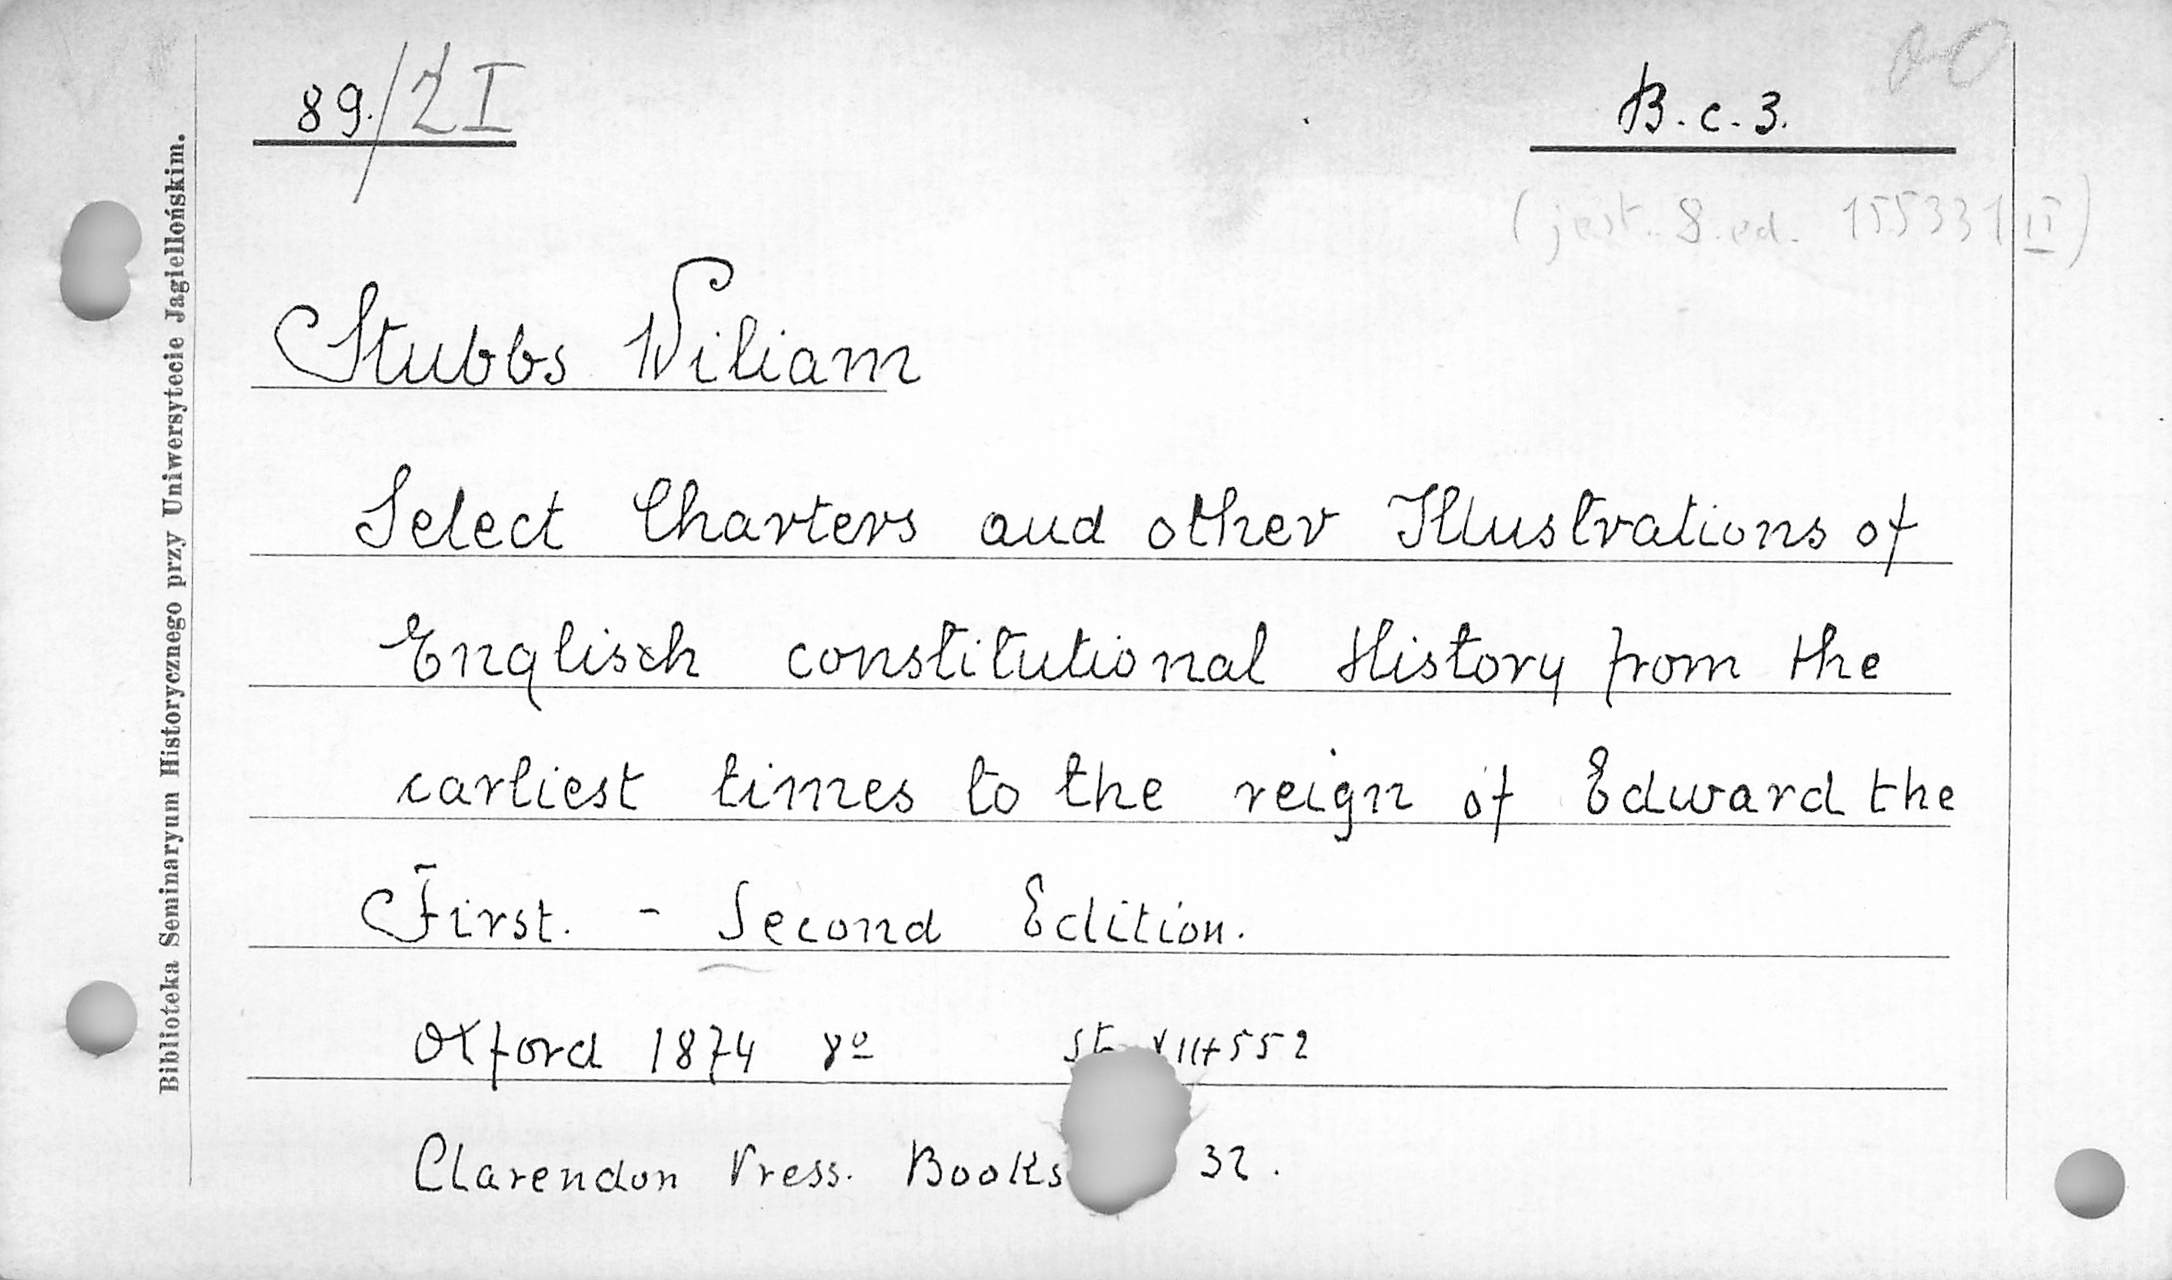 89./ZI
B.c.3.
(jest. 8.ed. 155331 II)
Stubbs Wiliam
Select Charters and other Illustrations of
Englisch constitutional History from the
earliest times to the reign of Edward the
First. - Second Edition.
Oxford 1874 8º st XII+552
Clarendon Press. Books 32.
Biblioteka Seminaryum Historycznego przy Uniwersytecie Jagiellońskim.